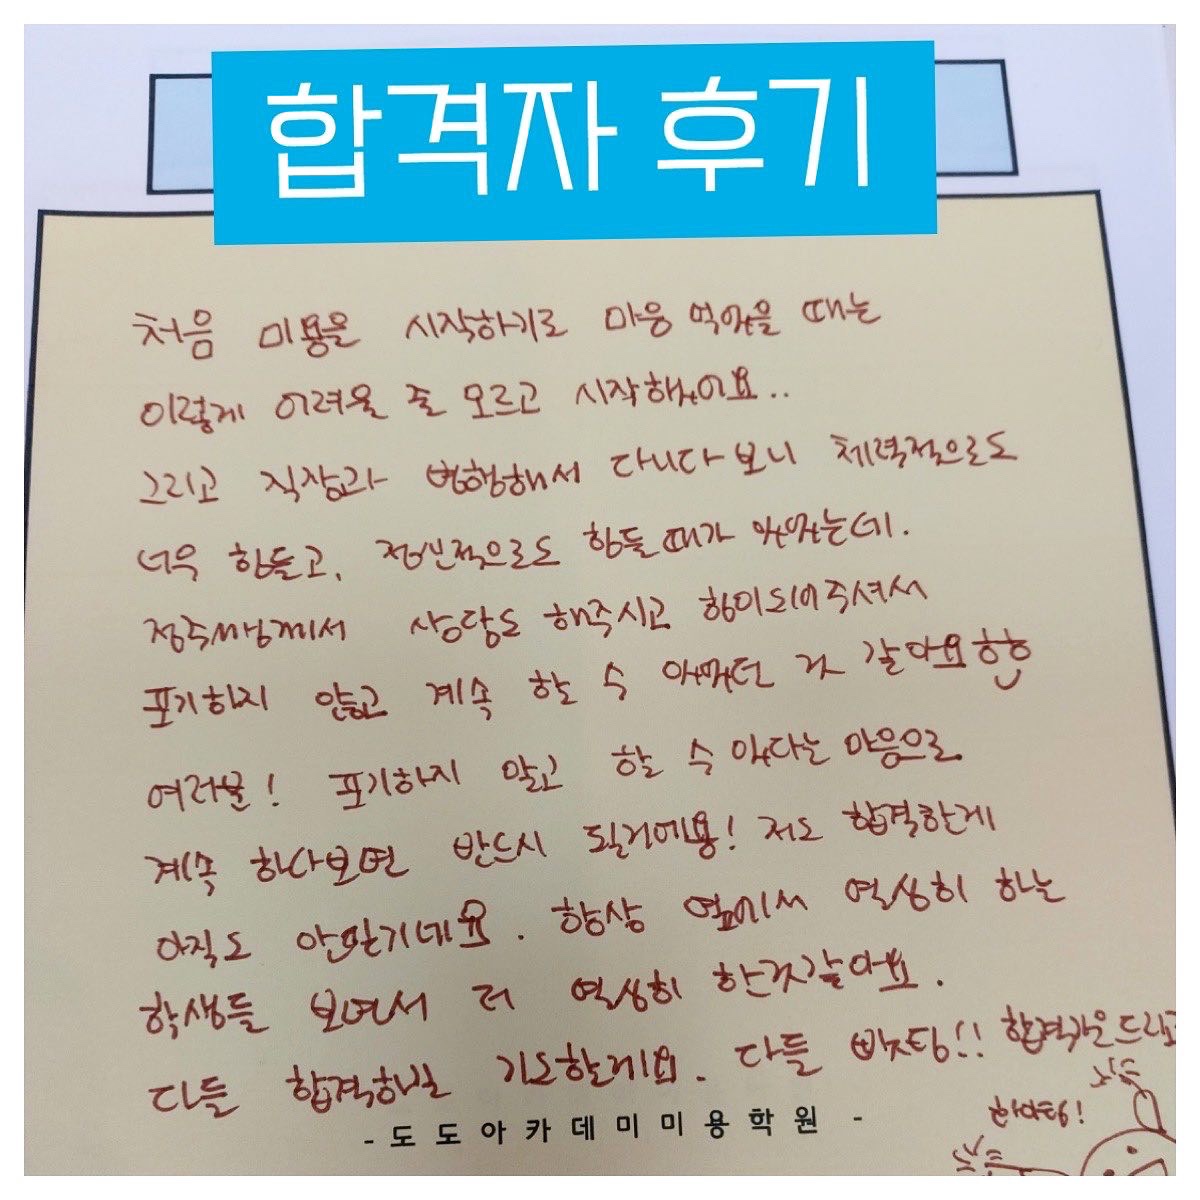 합격자 후기
처음 미용을 시작하기로 마음 먹었을 때는
이렇게 어려울 줄 모르고 시작했어요..
그리고 직장과 병행해서 다니다보니 체력적으로도
너무 힘들고, 정신적으로도 힘들때가 있었는데.
정주쌤께서 상담도 해주시고 힘이되어주셔서
포기하지 않고 계속 할 수 있었던 것 같아요
여러분! 포기하지 말고 할 수 있다는 마음으로
계속 하다보면 반드시 될거에용! 저도 합격한게
아직도 안믿기네요. 항상 옆에서 열심히 하는
학생들 보면서 더 열심히 한것같아요.
다들 합격하길 기도할게요. 다들 빠샤팅!! 합격기운드림
화이팅!
- 도도아카데미미용학원 -